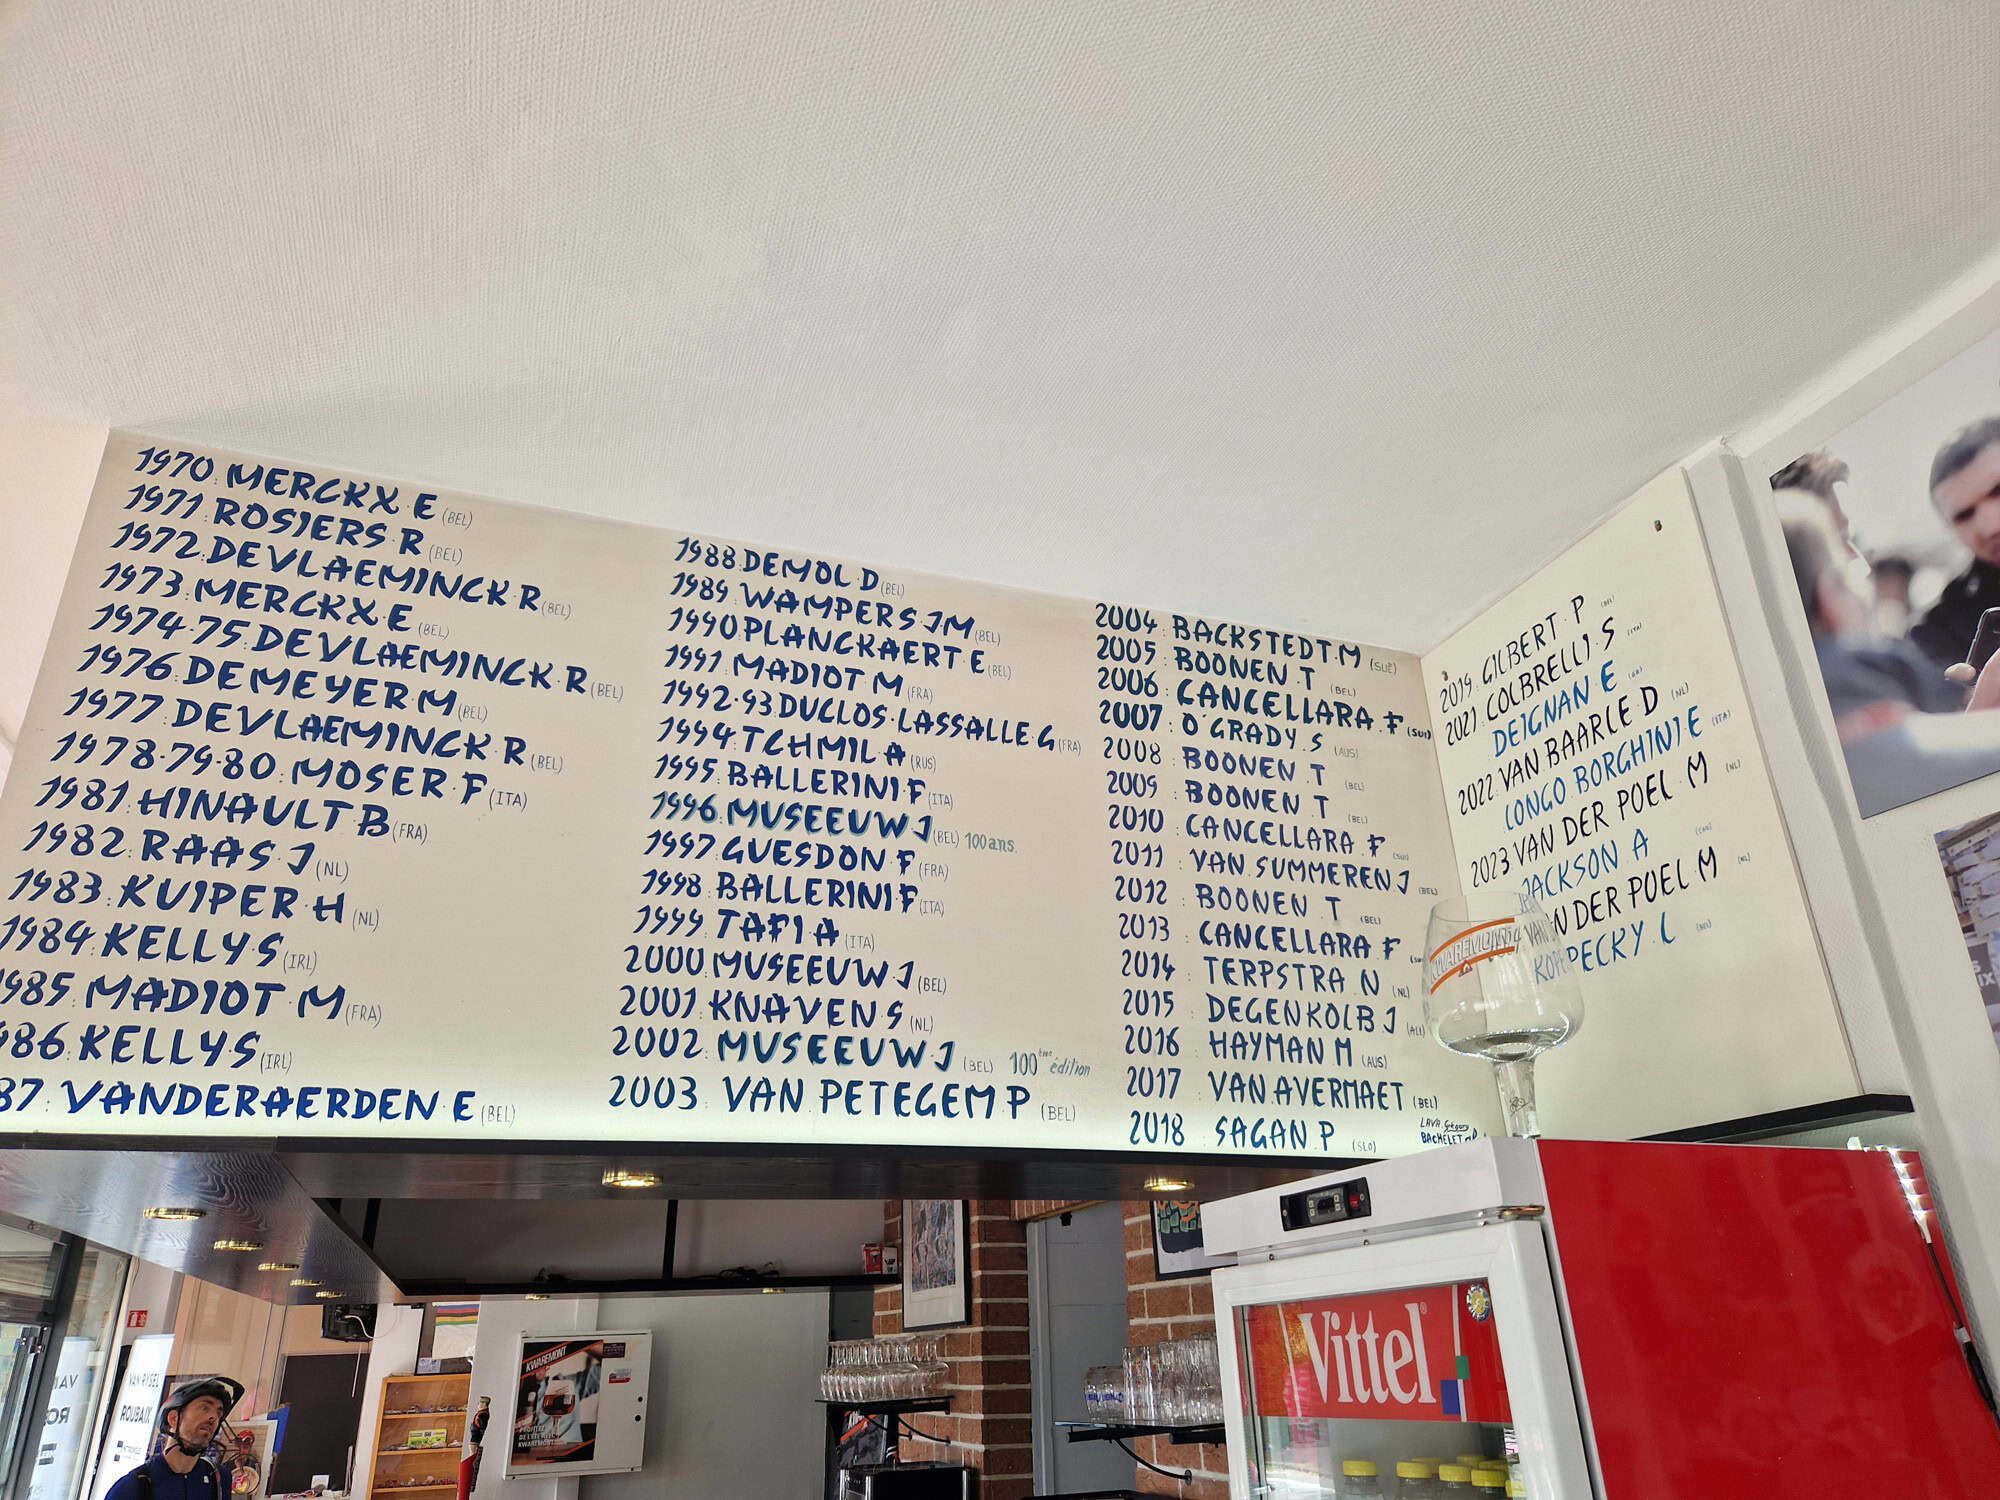 1970: MERCKX. E (BEL)
1971: ROSIERS. R (BEL)
1972: DEVLAEMINCK. R (BEL)
1973: MERCKX. E (BEL)
1974.75: DEVLAEMINCK. R (BEL)
1976: DEMEYER. M (BEL)
1977: DEVLAEMINCK. R (BEL)
1978.79.80: MOSER. F (ITA)
1981: HINAULT. B (FRA)
1982: RAAS. J (NL)
1983: KUIPER. H (NL)
1984: KELLY. S (IRL)
985: MADIOT. M (FRA)
86: KELLY. S (IRL)
87: VANDERAERDEN. E (BEL)
1988: DEMOL. D (BEL)
1989: WAMPERS. JM (BEL)
1990: PLANCKAERT. E (BEL)
1991: MADIOT. M (FRA)
1992.93: DUCLOS. LASSALLE. G (FRA)
1994: TCHMIL. A (RUS)
1995: BALLERINI. F (ITA)
1996: MUSEEUW. J (BEL) 100 ans.
1997: GUESDON. F (FRA)
1998: BALLERINI. F (ITA)
1999: TAFI. A (ITA)
2000: MUSEEUW. J (BEL)
2001: KNAVEN. S (NL)
2002: MUSEEUW. J (BEL) 100ème édition
2003: VAN. PETEGEM. P (BEL)
2004: BACKSTEDT. M (SUE)
2005: BOONEN. T (BEL)
2006: CANCELLARA. F (SUI)
2007: O'GRADY. S (AUS)
2008: BOONEN. T (BEL)
2009: BOONEN. T (BEL)
2010: CANCELLARA. F (SUI)
2011: VAN. SUMMEREN. J (BEL)
2012: BOONEN. T (BEL)
2013: CANCELLARA. F
2014: TERPSTRA. N (NL)
2015: DEGENKOLB. J (ALL)
2016: HAYMAN. M (AUS)
2017: VAN. AVERMAET (BEL)
2018: SAGAN. P (SLO)
LAVA. Grégory
BACHELET
2019: GILBERT. P (BEL)
2021: COLBRELLI. S (ITA)
DEIGNAN E (GB)
2022: VAN BAARLE D (NL)
LONGO BORGHINI E (ITA)
2023 VAN DER POEL M (NL)
JACKSON A (CAN)
VAN DER POEL M (NL)
KOPECKY L (BEL)
KWAREMONT
Vittel
KWAREMONT
PROFITEZ
DE L'ÉTÉ AVEC
KWAREMONT
VAN RYSEL
ROUBAIX